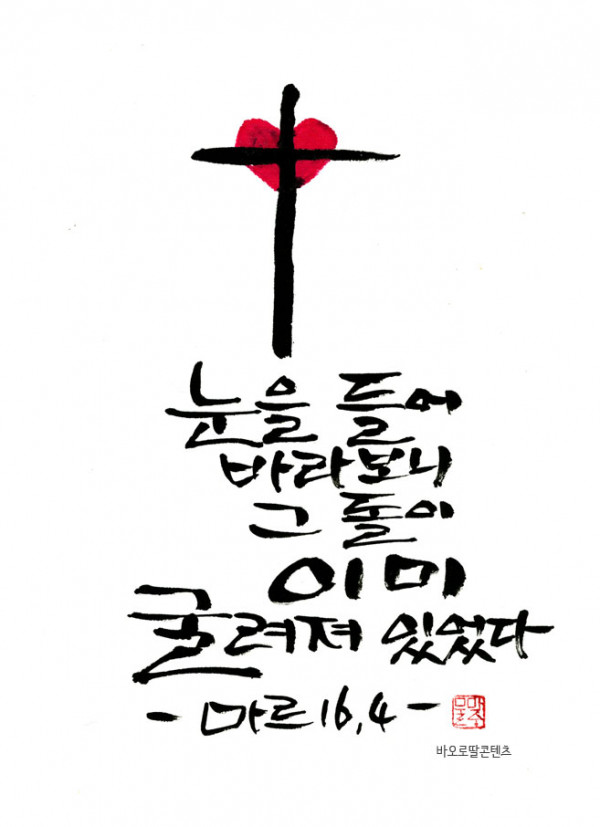 눈을 들어
바라보니
그 돌이
이미
굴려져 있었다
- 마르 16,4 -
바오로딸콘텐츠